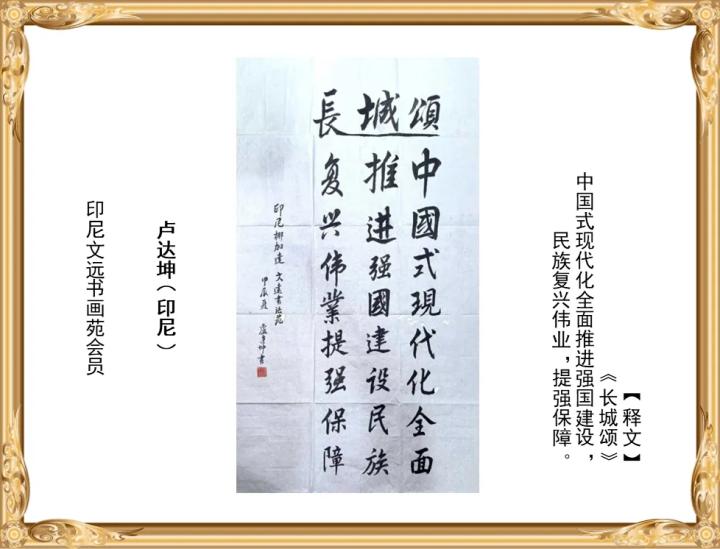 【释文】
《长城颂》
中国式现代化全面推进强国建设，
民族复兴伟业，提强保障。
長城頌
中國式現代化全面
推进强國建设民族
复兴伟業提强保障
印尼椰加達 文遠書法苑
甲辰夏 盧達坤書
卢达坤（印尼）
印尼文远书画苑会员